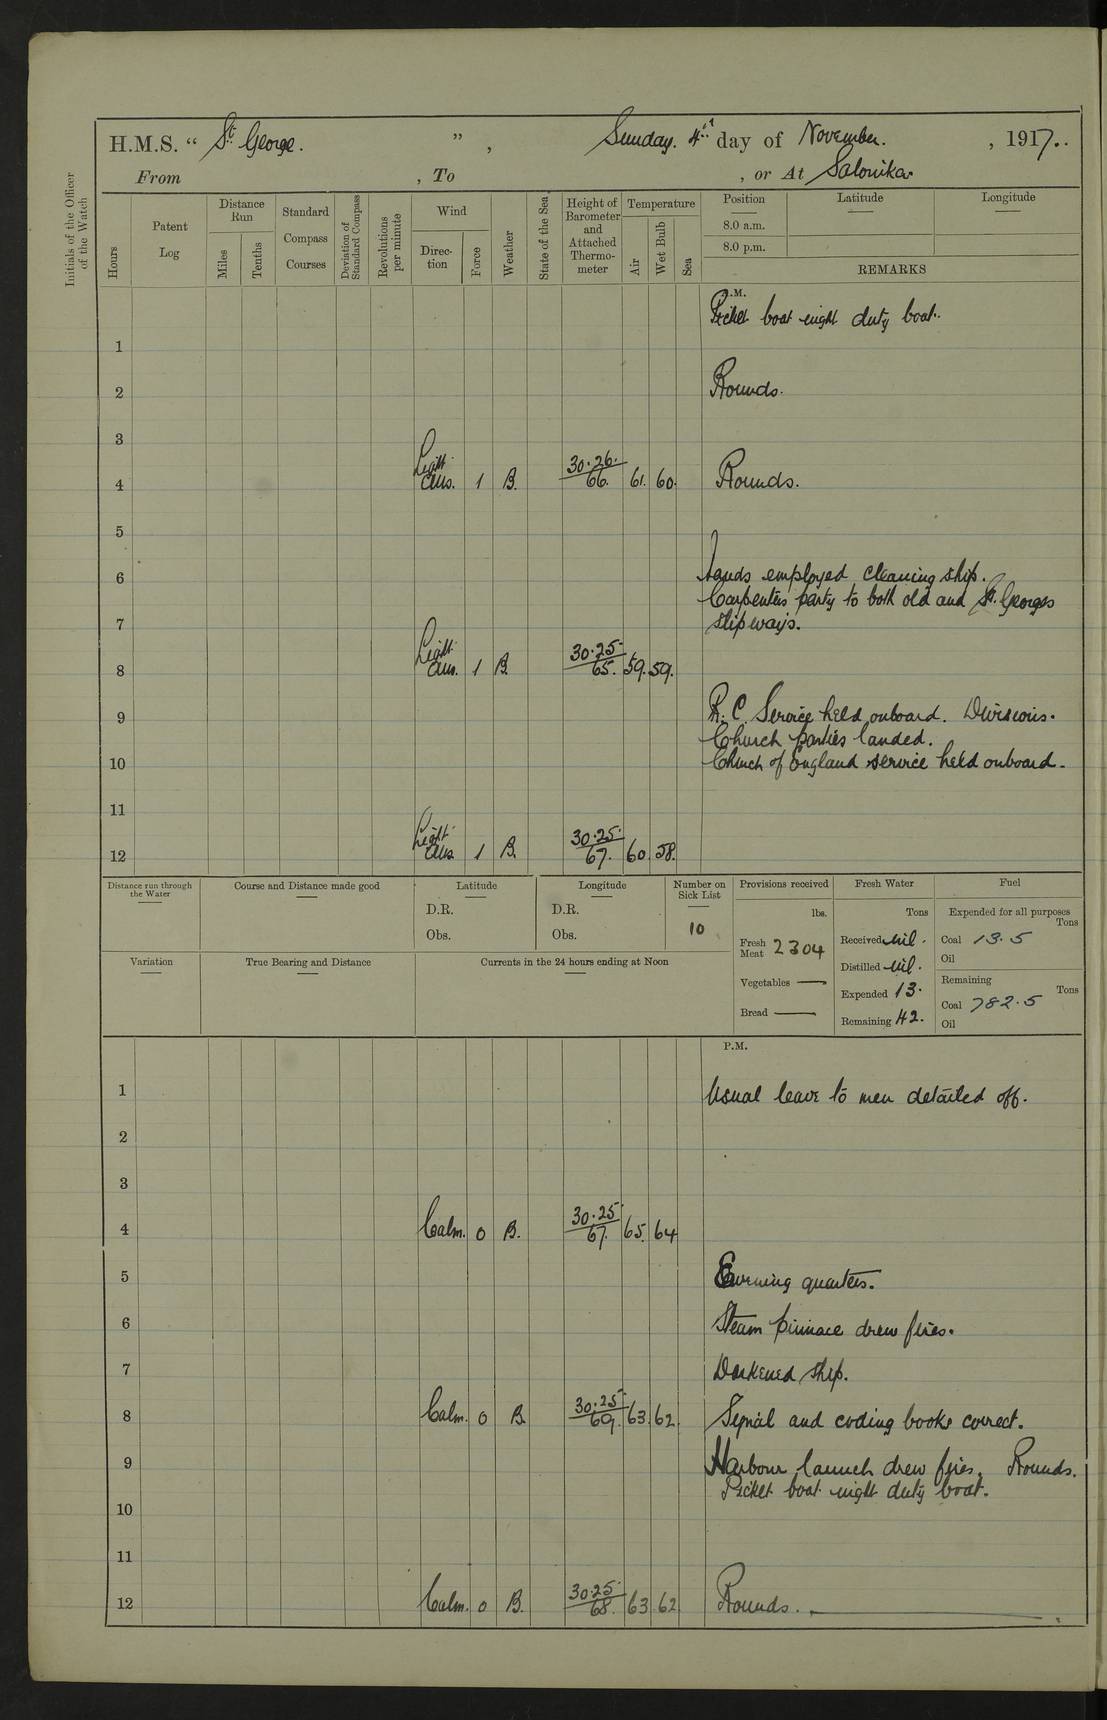 H.M.S. “ St. George. ” , Sunday. 4th day of November. , 1917..
From , To , or At Salonika.
Initials of the Officer of the Watch
Hours
Patent Log
Distance Run
Miles
Tenths
Standard Compass Courses
Deviation of Standard Compass
Revolutions per minute
Wind
Direc- tion
Force
Weather
State of the Sea
Height of Barometer and Attached Thermo- meter
Temperature
Air
Wet Bulb
Sea
Position
8.0 a.m.
8.0 p.m.
Latitude
Longitude
REMARKS
A.M.
Picket boat night duty boat.
1
2 Rounds.
3
4 Light airs. 1 B. 30.26. 66. 61. 60. Rounds.
5
6 Hands employed cleaning ship.
Carpenters party to both old and St. Georges
7 slipways.
8 Light airs. 1 B. 30.25 65. 59. 59.
9 R.C. Service held onboard. Divisions.
Church parties landed.
10 Church of England service held onboard.
11
12 Light airs 1 B. 30.25. 67. 60. 58.
Distance run through the Water
Course and Distance made good
Latitude
D.R.
Obs.
Longitude
D.R.
Obs.
Number on Sick List
10
Provisions received
lbs.
Fresh Meat 2304
Vegetables —
Bread —
Fresh Water
Tons
Received nil.
Distilled nil.
Expended 13.
Remaining 42.
Fuel
Expended for all purposes
Tons
Coal 13.5
Oil
Remaining
Tons
Coal 782.5
Oil
Variation
True Bearing and Distance
Currents in the 24 hours ending at Noon
P.M.
1 Usual leave to men detailed off.
2
3
4 Calm. 0 B. 30.25 67. 65. 64
5 Evening quarters.
6 Steam pinnace drew fires.
7 Darkened ship.
8 Calm. 0 B. 30.25 69. 63. 62. Signal and coding books correct.
9 Harbour launch drew fires. Rounds.
Picket boat night duty boat.
10
11
12 Calm. 0 B. 30.25 68. 63 62 Rounds.